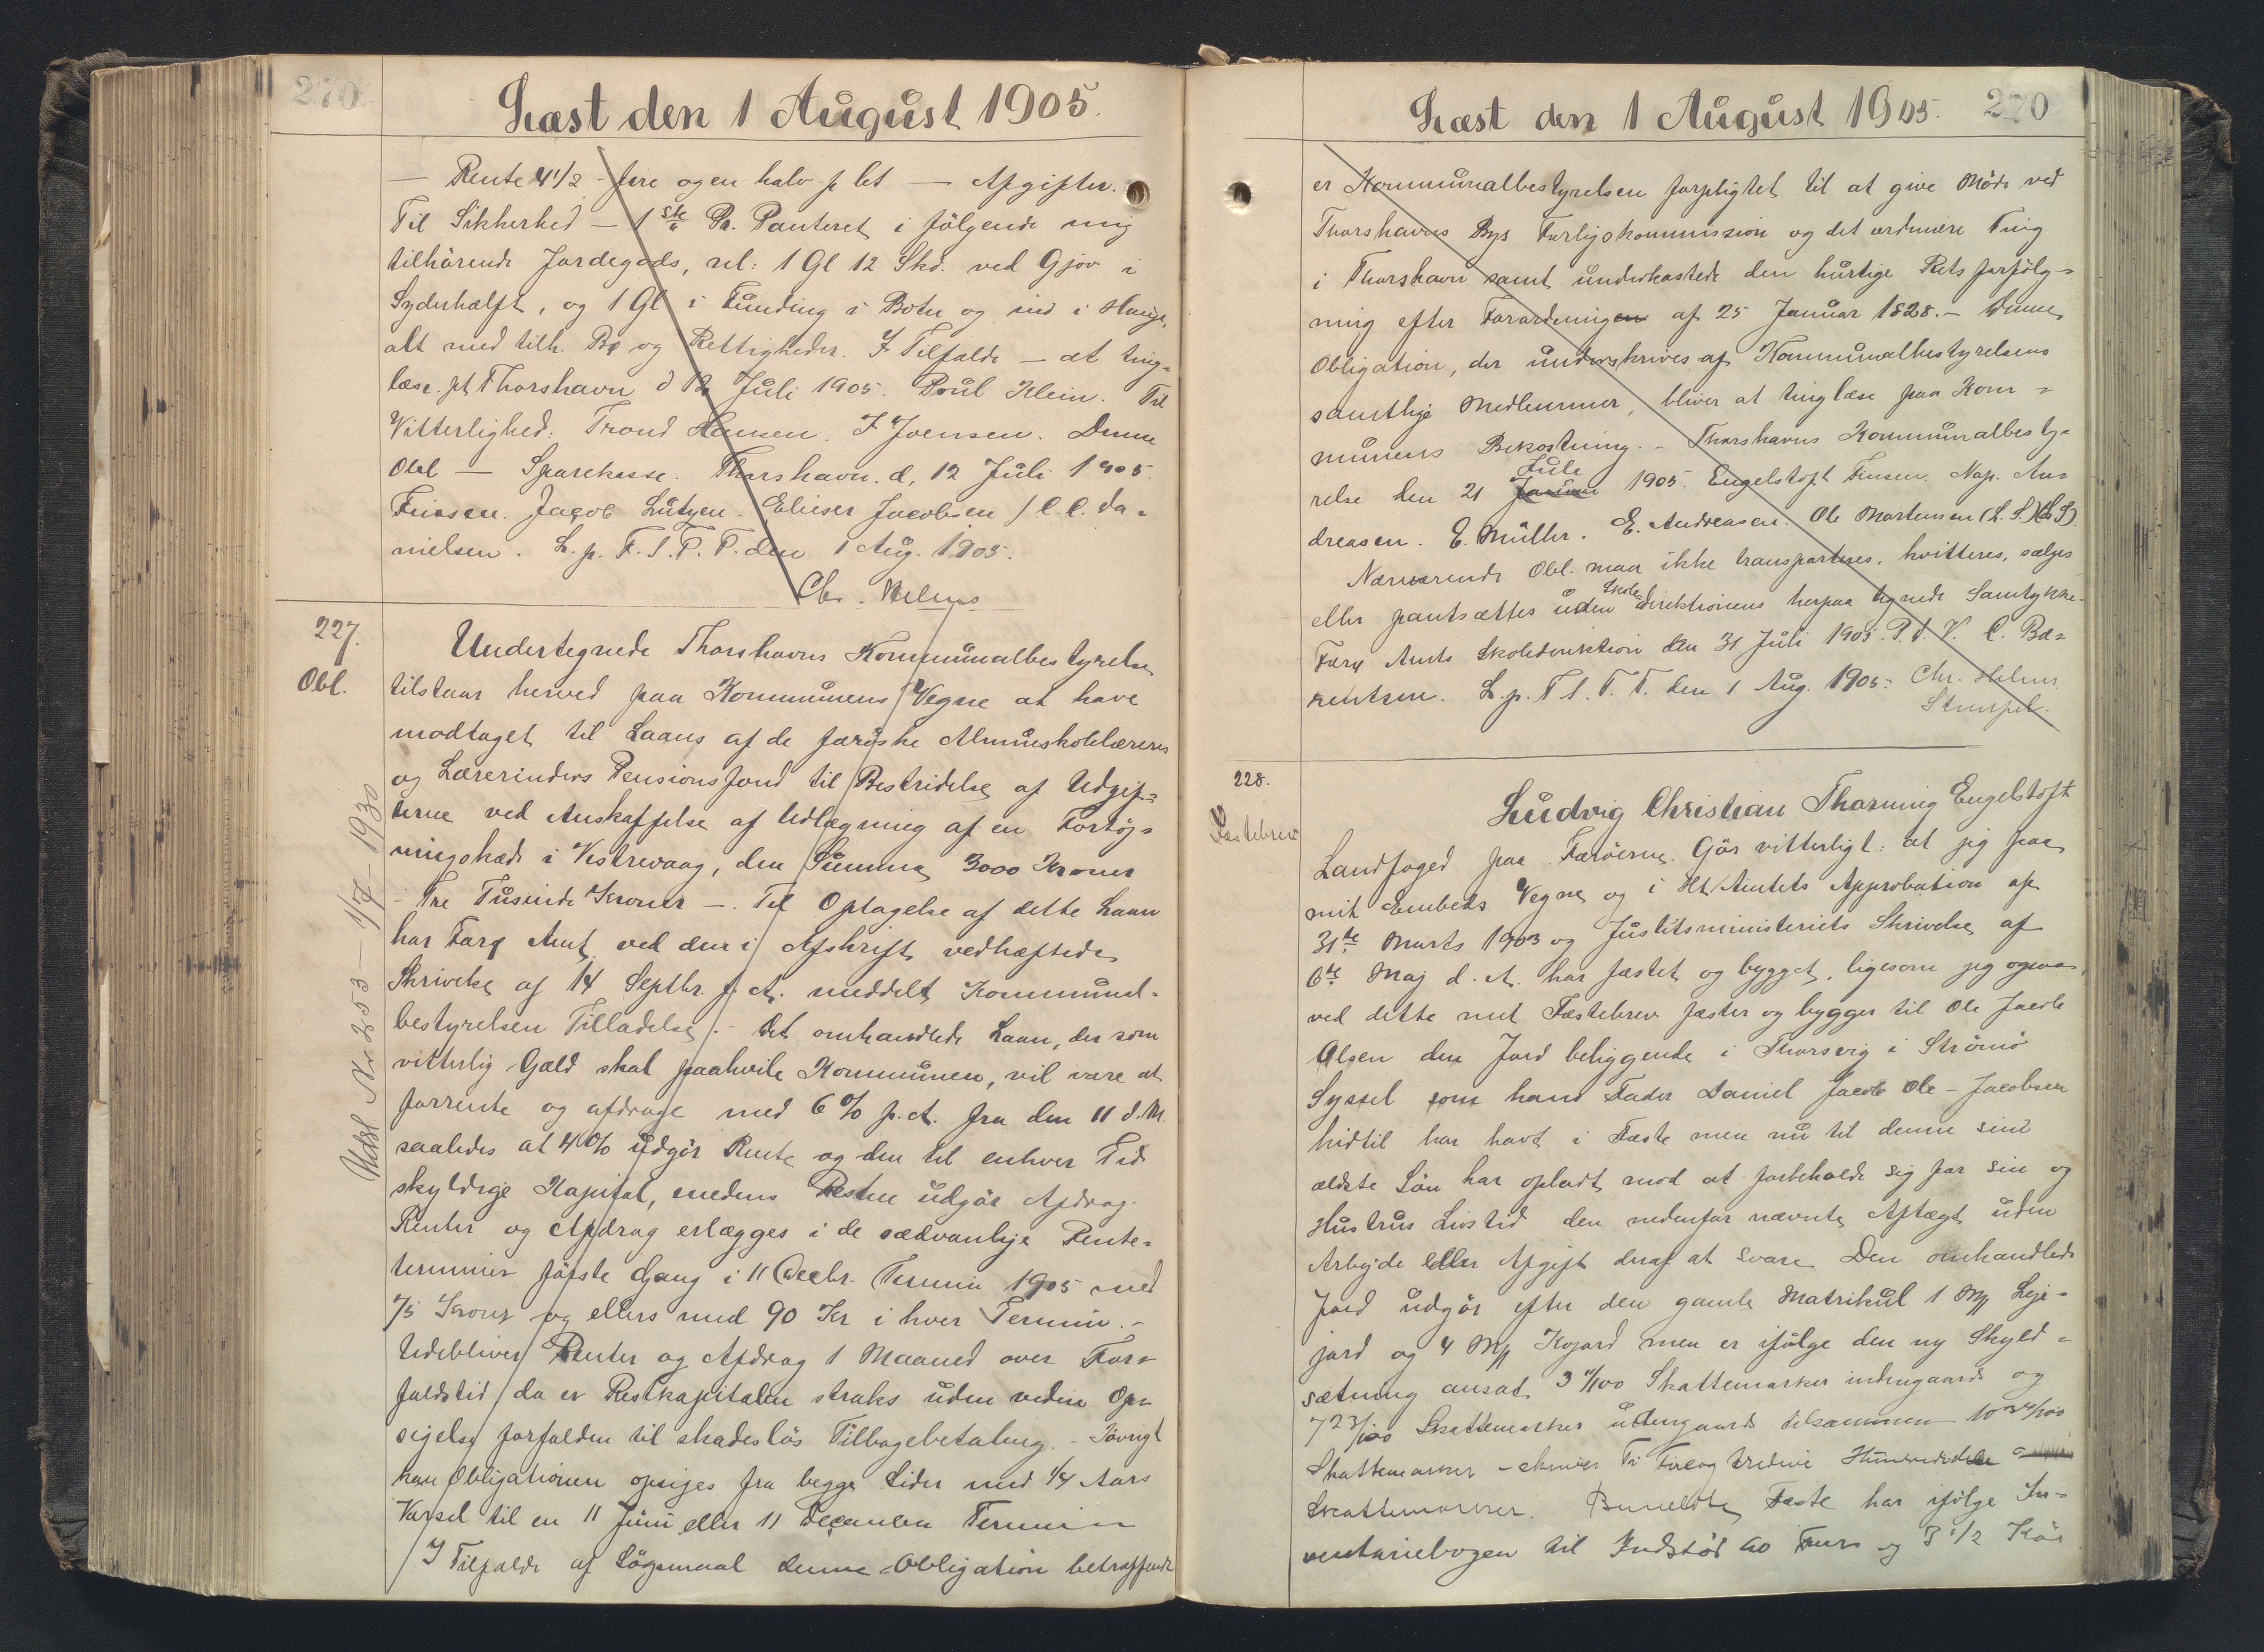 270
Læst den 1 August 1905.
— Rente 4 1/2 - fire og en halv p Ct — Afgifter.
Til Sikkerhed — 1ste Pr. Panteret i følgende mig
tilhörende Jordegods, nl: 1 Gl 12 Skd. ved Gjov i
Syderhalft, og 1 Gl i Funding i Botn og ind i
alt med tilh. og Rettigheder. I Tilfælde — at ting-
læse. pt Thorshavn d 12 Juli 1905. Poul Klein. Til
Vitterlighed: Trond Hansen. J Joensen. Denne
Obl — Sparekasse. Thorshavn. d, 12 Juli 1905.
Finsen. Jacob Lützen. Elieser Jacobsen / C. C. Da-
nielsen. L. p. F. S. P. P. den 1 Aug. 1905.
Chr. Helms
227.
Obl.
Undertegnede Thorshavns Kommunalbestyrelse
tilstaar herved paa Kommunens Vegne at have
modtaget til Laans af de færøske Almueskolelæreres
og Lærerinders Pensionsfond til Bestridelse af Udgif-
terne ved Anskaffelse af Udlægning af en Fortøj-
ningskæde i Vestrevaag, den Summa 3000 Kroner
- Tre Tusinde Kroner —. Til Optagelse af dette Laan
har Færø Amt ved den i Afskrift vedhæftede
Skrivelse af 14 Septbr. f. A. meddelt Kommunal-
bestyrelsen Tilladelse. - Det omhandlede Laan, der som
vitterlig Gæld skal paahvile Kommunen, vil være at
forrente og afdrage med 6 % p. A. fra den 11 d. M.
saaledes at 4 % udgör Rente og den til enhver Tid
skyldige Kapital, medens Resten udgör Afdrag.
Renter og Afdrag erlægges i de sædvanlige Rente-
terminer første Gang i 11 Decbr. Termin 1905 med
75 Kroner og ellers med 90 Kr i hver Termin. -
Udebliver Renter og Afdrag 1 Maaned over For-
faldstid da er Restkapitalen straks uden videre Op-
sigelse forfalden til skadesløs Tilbagebetaling. - Iøvrigt
kan Obligationen opsiges fra begge Sider med 1/4 Aars
Varsel til en 11 Juni eller 11 December Termin
I Tilfælde af Søgsmaal denne Obligation betræffende
Udsl Nr 253 — 1/7 - 1930
Læst den 1 August 1905. 270
er Kommunalbestyrelsen forpligtet til at give Möde ved
Thorshavns Bys Forligskommission og det ordinære Ting
i Thorshavn samt underkastede den hurtige Rets forfølg-
ning efter Forordningen af 25 Januar 1828. - Denne
Obligation, der underskrives af Kommunalbestyrelsens
samtlige Medlemmer, bliver at tinglæse paa Kom-
munens Bekostning. - Thorshavns Kommunalbesty-
relse den 21 Juli 1905. Engelstoft Finsen. Nap. An-
dreasen. E. Müller. E. Andreasen. Ole Mortensen (L. S.) (L S).
Nærværende Obl. maa ikke transporteres, kvitteres, sælges
eller pantsættes uden Skoledirektionens herpaa tegnede Samtykke.
Færø Amts Skoledirektion den 31 Juli 1905. P. d. V. C. Bæ-
rentsen. L. p. F S. T. T. den 1 Aug. 1905. Chr. Helms
Stempel.
228.
Fæstebrev
Ludvig Christian Thorning Engelstoft
Landfoged paa Færöerne. Gör vitterligt: at jeg paa
mit Embeds Vegne og i Hht Amtets Approbation af
31te Marts 1903 og Justitsministeriets Skrivelse af
6te Maj d. A. har fæstet og bygget, ligesom jeg ogsaa
ved dette mit Fæstebrev fæster og bygger til Ole Jacob
Olsen den Jord beliggende i Thorsvig i Strömö
Syssel som hans Fader Daniel Jacob Ole - Jacobsen
hidtil har havt i Fæste men nu til denne sin
ældste Sön har opladt mod at forbeholde sig for sin og
Hustrus Livstid den nedenfor nævnte Aftægt uden
Arbejde eller Afgift deraf at svare. Den omhandlede
Jord udgör efter den gamle Matrikul 1 Mk Leje-
jord og 4 Mk Kojord men er ifølge den ny Skyld-
sætning ansat 3 11/100 Skattemarker indengaards og
7 23/100 Skattemarker udengaards tilsammen 10 34/100
Skattemarker - skriver Ti Fireog tredive Hundrededele
Skattemarker. Bemeldte Fæste har ifølge In-
ventariebogen til Indstöd 60 Faar og 3 1/2 Kör